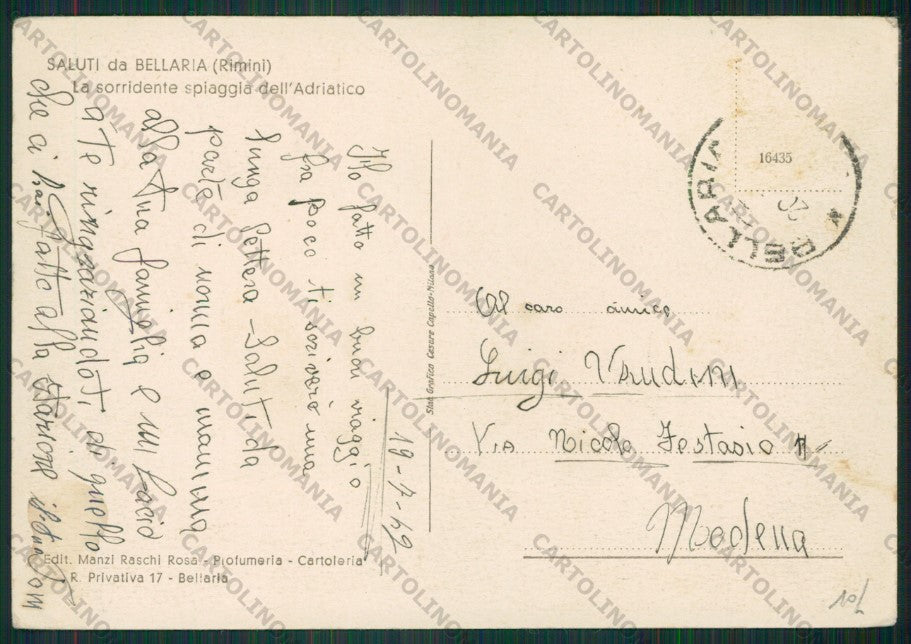 SALUTI da BELLARIA (Rimini)
La sorridente spiaggia dell'Adriatico
19-7-49
Ho fatto un buon viaggio
fra poco ti scriverò una
lunga lettera - Saluti da
parte di nonna e mamma
alla tua famiglia e un bacio
a Te ringraziandoti di quello
che ci hai fatto alla stazione il tuo
Edit. Manzi Raschi Rosa - Profumeria - Cartoleria
R. Privativa 17 - Bellaria
Stab. Grafico Cesare Capello-Milano
16435
BELLARIA
Al caro amico
Luigi
Via Nicolo Testasio
Modena
CARTOLINOMANIA